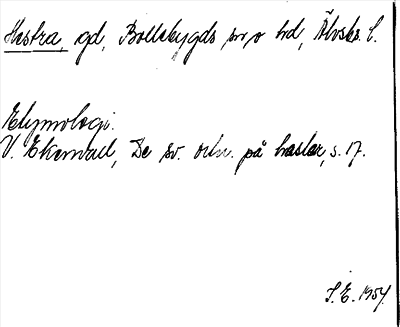 Hestra, gd, Bollebygds sn, o hd, Älvsbs. l.
Etymologi.
V. Ekenvall, De sv. ortn. på hester, s. 17.
S.E. 1954.